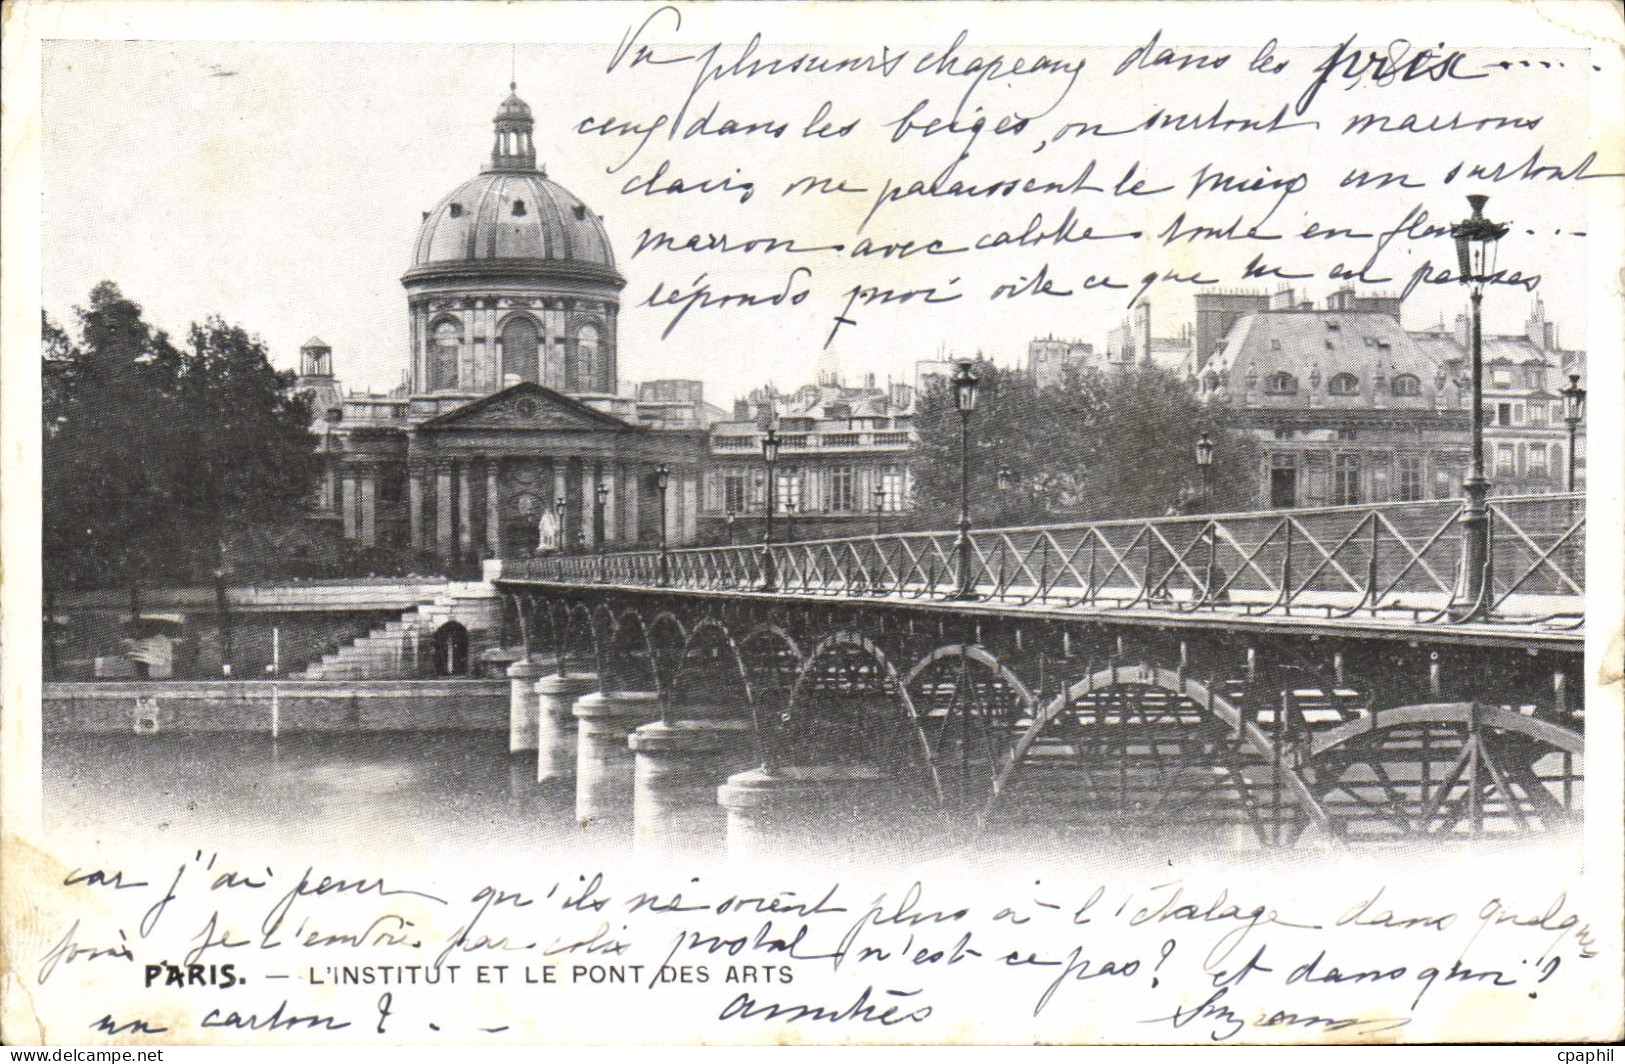 Vu plusieurs chapeaux dans les prix .....
ceux dans les beiges, ou surtout marrons
clairs me paraissent le mieux un surtout
marron avec calotte toute en fleurs...
réponds moi vite ce que tu en penses
car j'ai peur qu'ils ne soient plus à l'étalage dans quelques
jours Je l'envoie par colis postal n'est-ce pas? et dans quoi?
PARIS. — L'INSTITUT ET LE PONT DES ARTS
un carton? . _ Amitiés Suzanne
cpaphil